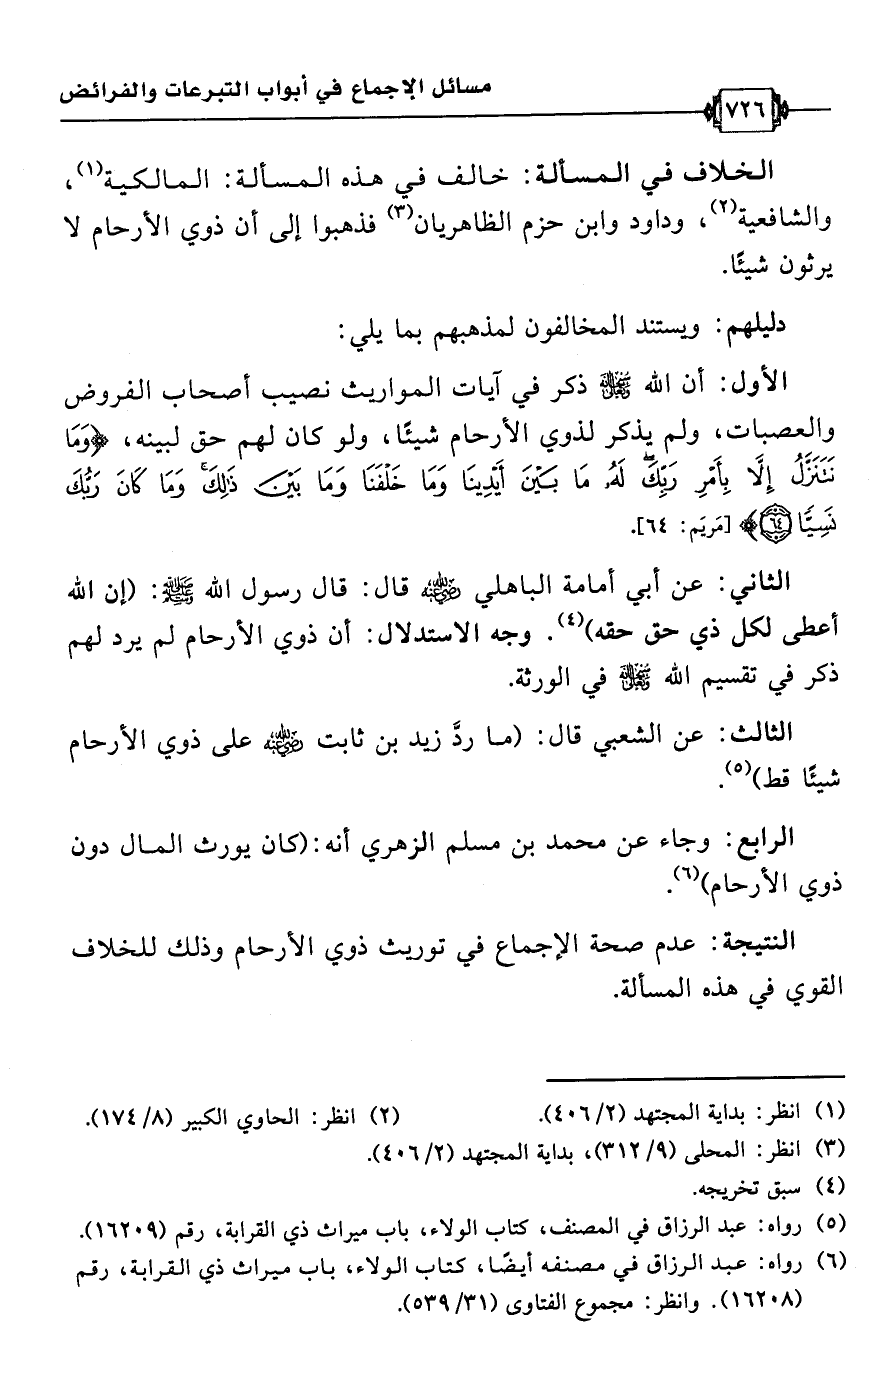 مسائل الإجماع في أبواب التبرعات والفرائض
٧٢٦
الخلاف في المسألة: خالف في هذه المسألة: المالكية(١)،
والشافعية(٢)، وداود وابن حزم الظاهريان(٣) فذهبوا إلى أن ذوي الأرحام لا
يرثون شيئًا.
دليلهم: ويستند المخالفون لمذهبهم بما يلي:
الأول: أن الله ﷾ ذكر في آيات المواريث نصيب أصحاب الفروض
والعصبات، ولم يذكر لذوي الأرحام شيئًا، ولو كان لهم حق لبينه، ﴿وَمَا
نَتَنَزَّلُ إِلَّا بِأَمْرِ رَبِّكَۖ لَهُۥ مَا بَيْنَ أَيْدِينَا وَمَا خَلْفَنَا وَمَا بَيْنَ ذَٰلِكَۚ وَمَا كَانَ رَبُّكَ
نَسِيًّا ٦٤﴾ [مَريَم: ٦٤].
الثاني: عن أبي أمامة الباهلي رضي الله عنه قال: قال رسول الله ﷺ: (إن الله
أعطى لكل ذي حق حقه)(٤). وجه الاستدلال: أن ذوي الأرحام لم يرد لهم
ذكر في تقسيم الله ﷾ في الورثة.
الثالث: عن الشعبي قال: (ما ردَّ زيد بن ثابت رضي الله عنه على ذوي الأرحام
شيئًا قط)(٥).
الرابع: وجاء عن محمد بن مسلم الزهري أنه:(كان يورث المال دون
ذوي الأرحام)(٦).
النتيجة: عدم صحة الإجماع في توريث ذوي الأرحام وذلك للخلاف
القوي في هذه المسألة.
(١) انظر: بداية المجتهد (٢/ ٤٠٦). (٢) انظر: الحاوي الكبير (٨/ ١٧٤).
(٣) انظر: المحلى (٩/ ٣١٢)، بداية المجتهد (٢/ ٤٠٦).
(٤) سبق تخريجه.
(٥) رواه: عبد الرزاق في المصنف، كتاب الولاء، باب ميراث ذي القرابة، رقم (١٦٢٠٩).
(٦) رواه: عبد الرزاق في مصنفه أيضًا، كتاب الولاء، باب ميراث ذي القرابة، رقم
(١٦٢٠٨). وانظر: مجموع الفتاوى (٣١/ ٥٣٩).